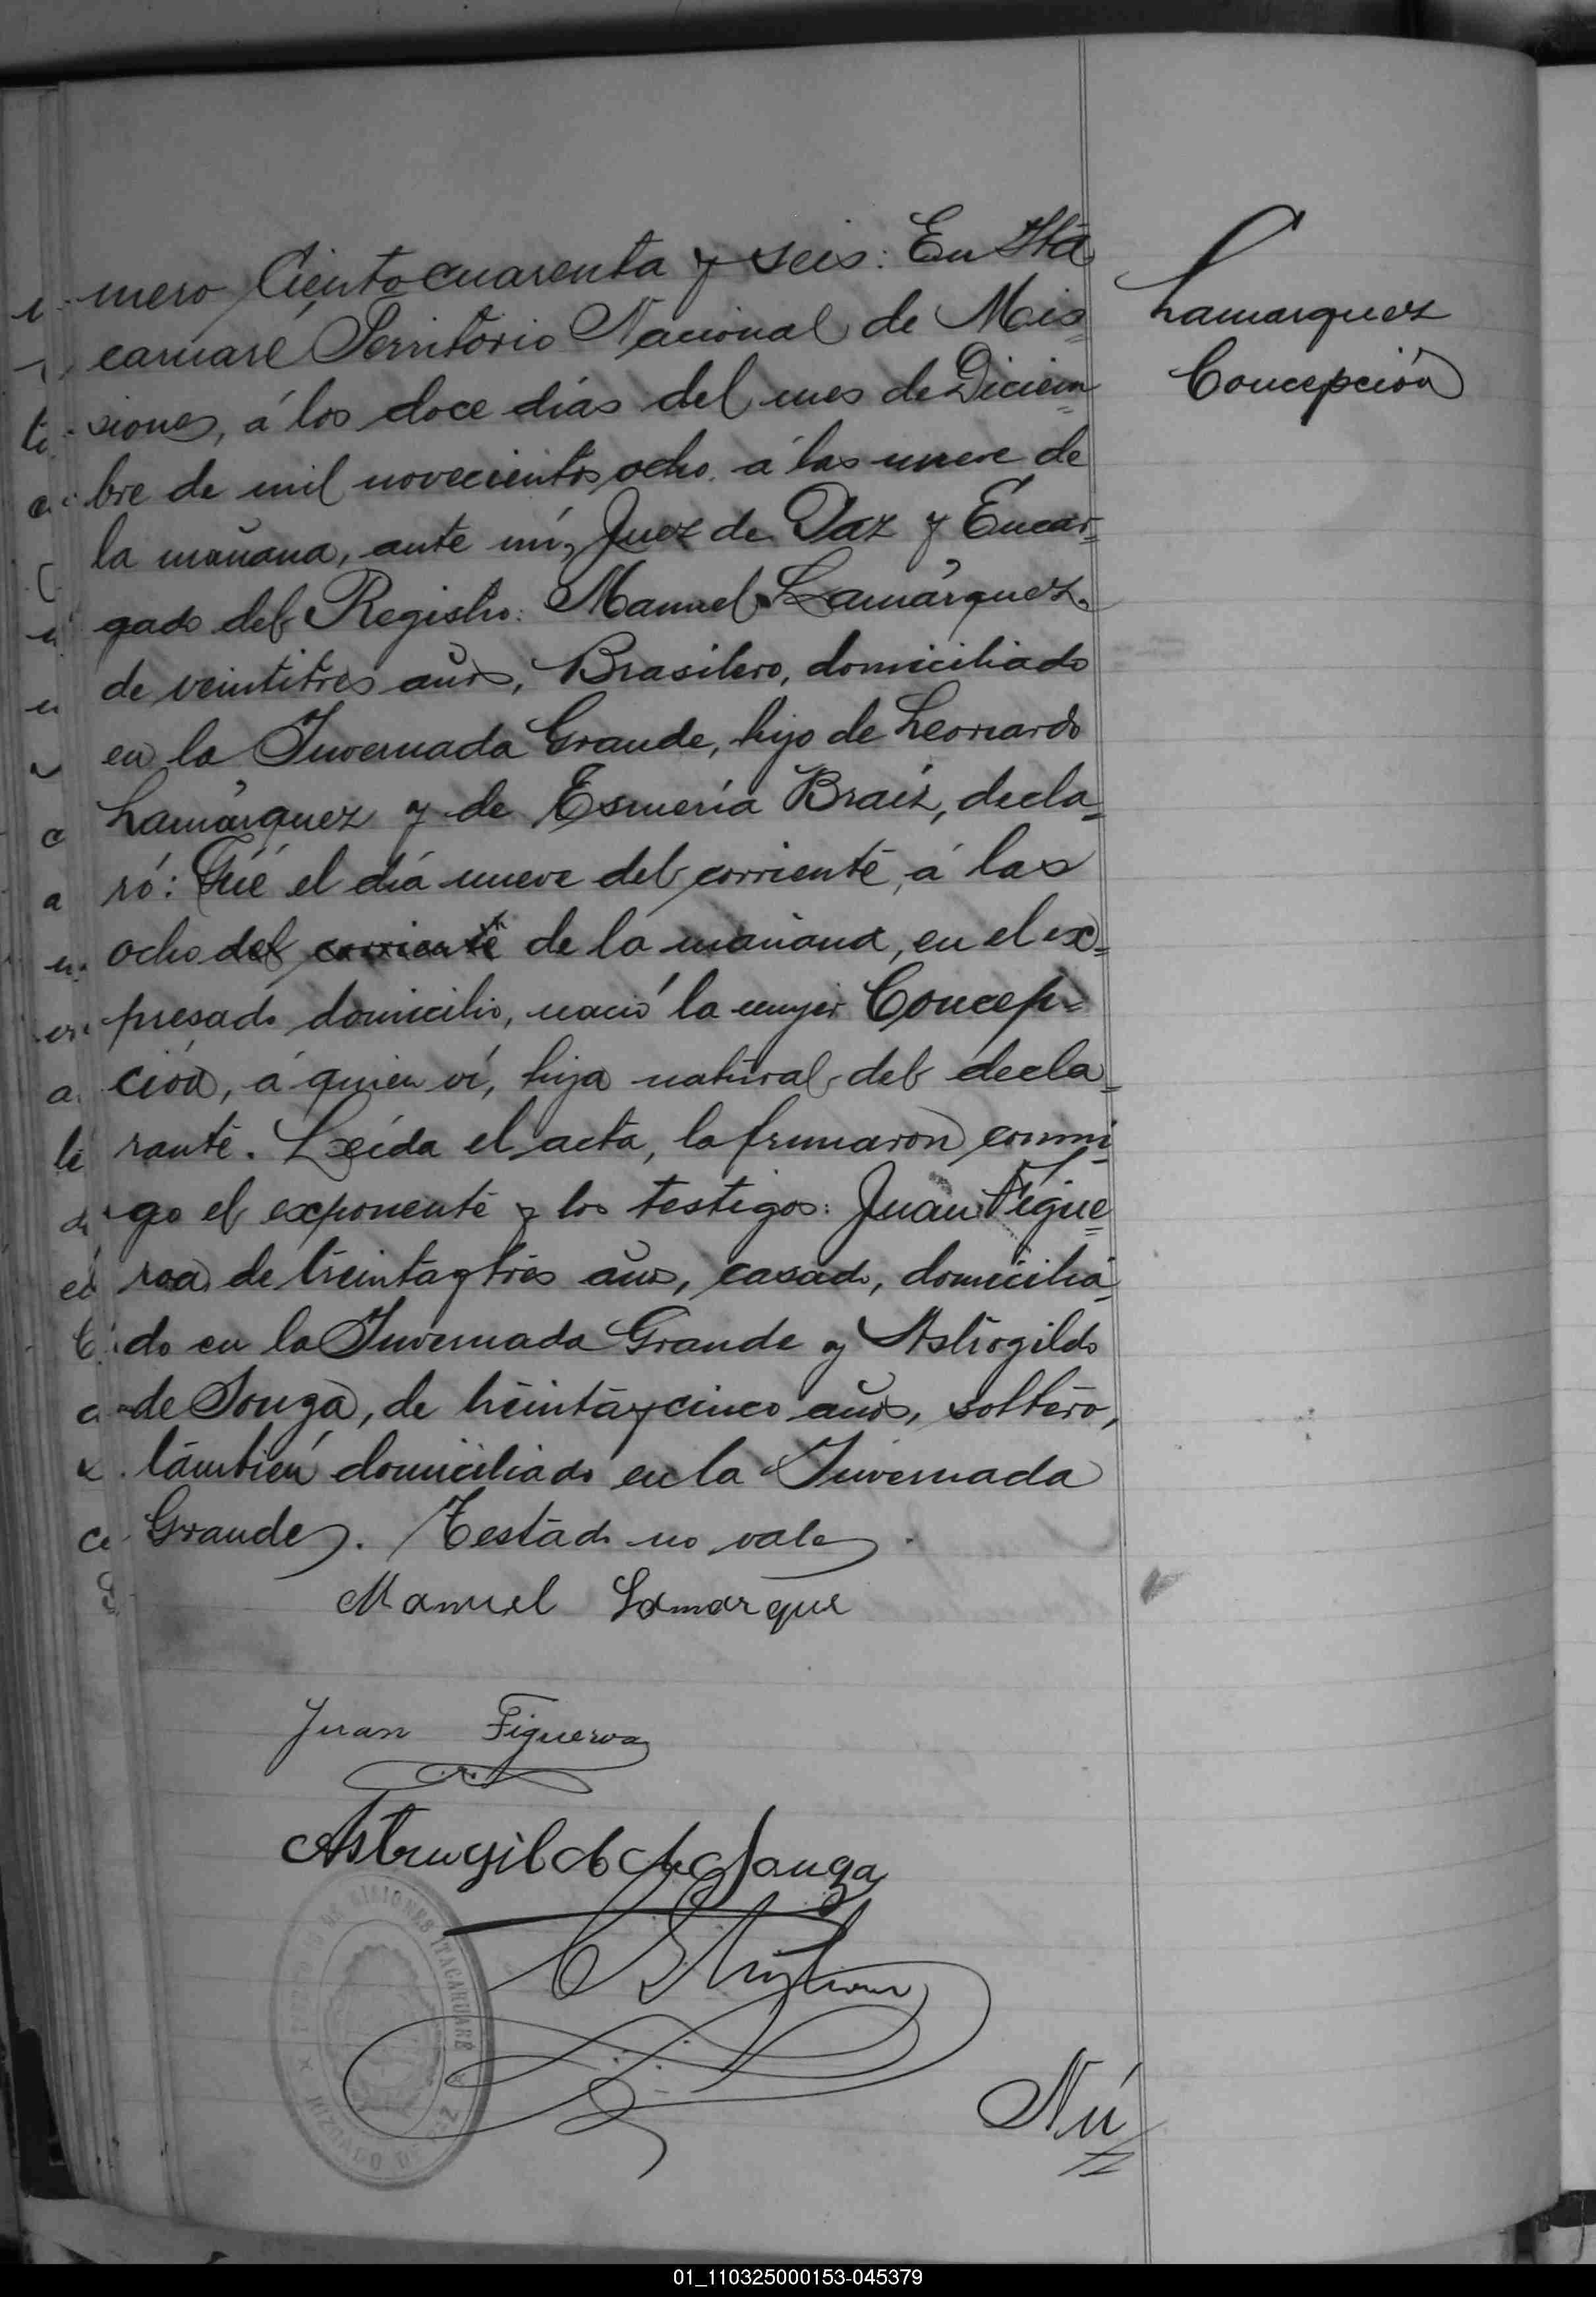 mero Ciento cuarenta y seis: En Ita
caruaré Territorio Nacional de Mis=
siones, á los doce días del mes de Diciem=
bre de mil novecientos ocho. á las nueve de
la mañana, ante mí, Juez de Paz y Encar=
gado del Registro: Manuel Lamárquez.
de veintitres años, Brasilero, domiciliado
en la Invernada Grande, hijo de Leonardo
Lamárquez y de Esmería Braiz, decla=
ró: Que el día nueve del corriente, á las
ocho del corriente de la mañana, en el ex=
presado domicilio, nació la mujer Concep=
ción, á quien ví, hija natural del decla=
rante. Leída el acta, la firmaron conmi=
go el exponente y los testigos: Juan Figue=
roa, de treinta y tres años, casado, domicilia=
do en la Invernada Grande y Astrogildo
de Souza, de treinta y cinco años, soltero,
también domiciliado en la Invernada
Grande. Testado no vale.
Manuel Lamarque
Juan Figueroa
Astrugildo de Souza
Nú=
Lamarquez
Concepción
ITACARUARÉ
01_110325000153-045379